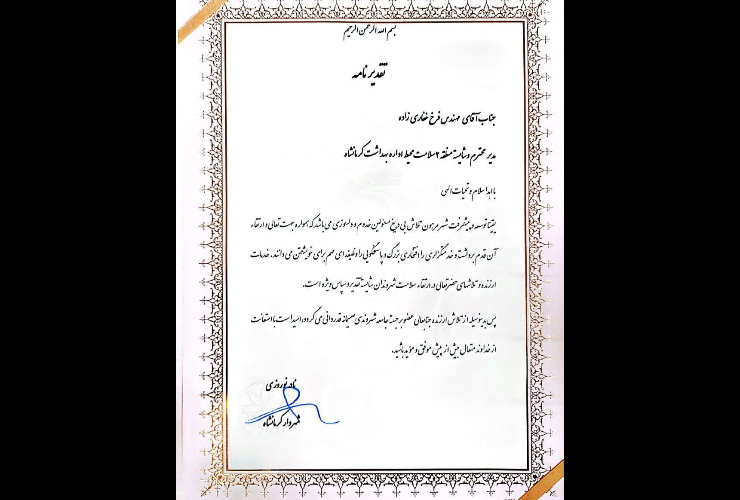 بسم الله الرحمن الرحیم
تقدیر نامه
جناب آقای مهندس فرخ غفاری زاده
مدیر محترم و شایسته منطقه ۲ سلامت محیط اداره بهداشت کرمانشاه
با اهدا سلام و تحیات الهی
یقینا توسعه و پیشرفت شهر مرهون تلاش بی دریغ مسئولین خدوم و دلسوزی می باشد که همواره جهت تعالی و ارتقاء
آن قدم برداشته و خدمتگزاری را افتخاری بزرگ و پاسخگویی را وظیفه ای مهم برای خویشتن می دانند. خدمات
ارزنده و تلاشهای حضرتعالی در ارتقاء سلامت شهروندان شایسته تقدیر و سپاس ویژه است.
پس بدینوسیله از تلاش ارزنده جنابعالی عضو برجسته جامعه شهروندی صمیمانه قدردانی می گردد، امید است با استعانت
از خداوند متعال بیش از پیش موفق و موید باشید.
نادر نوروزی
شهردار کرمانشاه